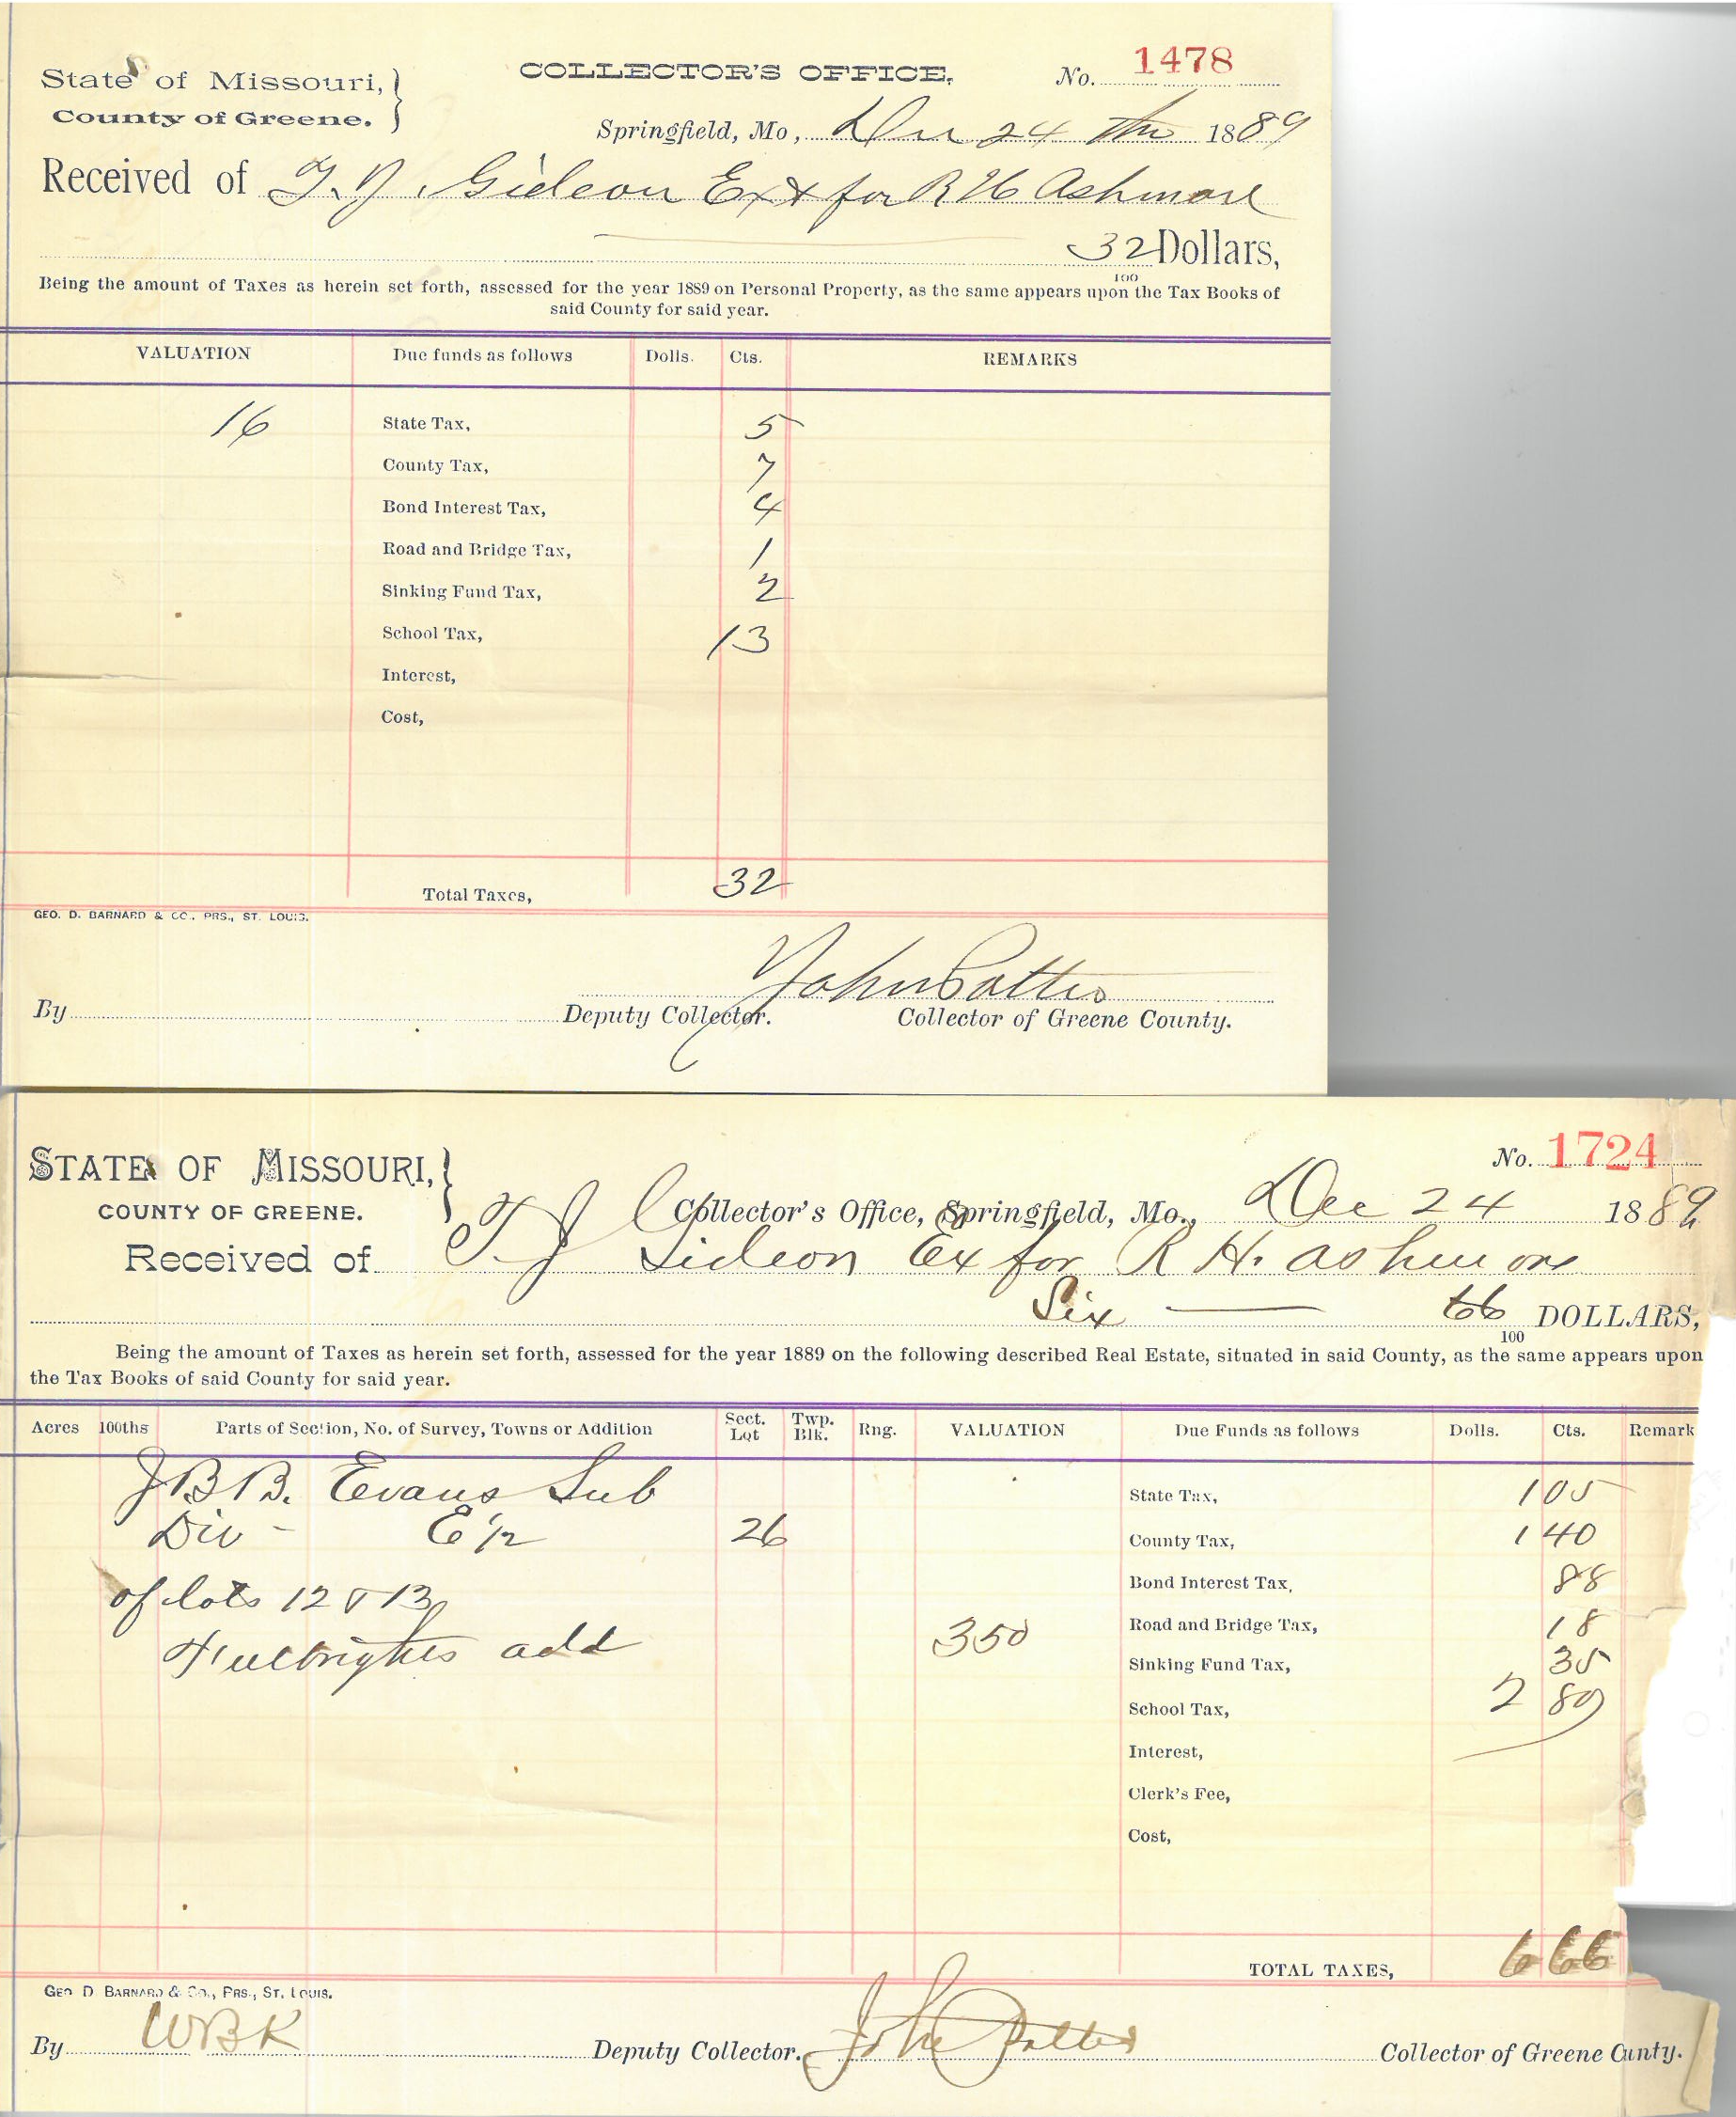 State of Missouri,
County of Greene.
COLLECTOR'S OFFICE,
No. 1478
Springfield, Mo, Dec 24 1889
Received of T. J. Gideon Ex for R H Ashmore
32 Dollars,
100
Being the amount of Taxes as herein set forth, assessed for the year 1889 on Personal Property, as the same appears upon the Tax Books of
said County for said year.
VALUATION Due funds as follows Dolls. Cts. REMARKS
16 State Tax, 5
County Tax, 7
Bond Interest Tax, 4
Road and Bridge Tax, 1
Sinking Fund Tax, 2
School Tax, 13
Interest,
Cost,
Total Taxes, 32
GEO. D. BARNARD & CO., PRS., ST. LOUIS.
John Potter
By Deputy Collector. Collector of Greene County.
STATE OF MISSOURI,
COUNTY OF GREENE.
No. 1724
Collector's Office, Springfield, Mo., Dec 24 1889
Received of T J Gideon Ex for R H. Ashmore
Six 66 DOLLARS,
100
Being the amount of Taxes as herein set forth, assessed for the year 1889 on the following described Real Estate, situated in said County, as the same appears upon
the Tax Books of said County for said year.
Acres 100ths Parts of Section, No. of Survey, Towns or Addition Sect. Lot Twp. Blk. Rng. VALUATION Due Funds as follows Dolls. Cts. Remark
J B B. Evans Sub State Tax, 1 05
Div - E 1/2 26 County Tax, 1 40
of lots 12 & 13 Bond Interest Tax, 88
Fulbrights add 350 Road and Bridge Tax, 18
Sinking Fund Tax, 35
School Tax, 2 80
Interest,
Clerk's Fee,
Cost,
TOTAL TAXES, 6 66
GEO D BARNARD & CO., PRS., ST. LOUIS.
By WBK Deputy Collector. John Potter Collector of Greene Cunty.